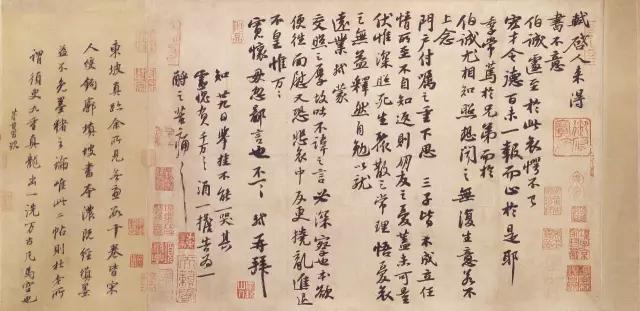 軾啓人來得
書不意
伯誠遽至於此哀愕不已
宏才令德百未一報而止於是耶
季常篤於兄弟而於
伯誠尤相知照想聞之無復生意若不
上念
門户付囑之重下思三子皆不成立任
情所至不自知返則朋友之憂蓋未可量
伏惟深照死生聚散之常理悟憂哀
之無益釋然自勉以就
遠業軾蒙
交照之厚故吐不諱之言必深察也本欲
便往面慰又恐悲哀中反更撓亂進退
不皇惟万万
寬懷毋忽鄙言也不一一軾再拜
知廿九日舉挂不能一哭其
靈愧負千万千万酒一擔告為一
酹之苦痛苦痛
東坡真跡余所見無慮數十卷皆宋
人雙鉤廓填坡書本濃既經填墨
益不免墨豬之論唯此二帖則杜老所
謂須臾九重真龍出一洗万古凡馬空也
董其昌題